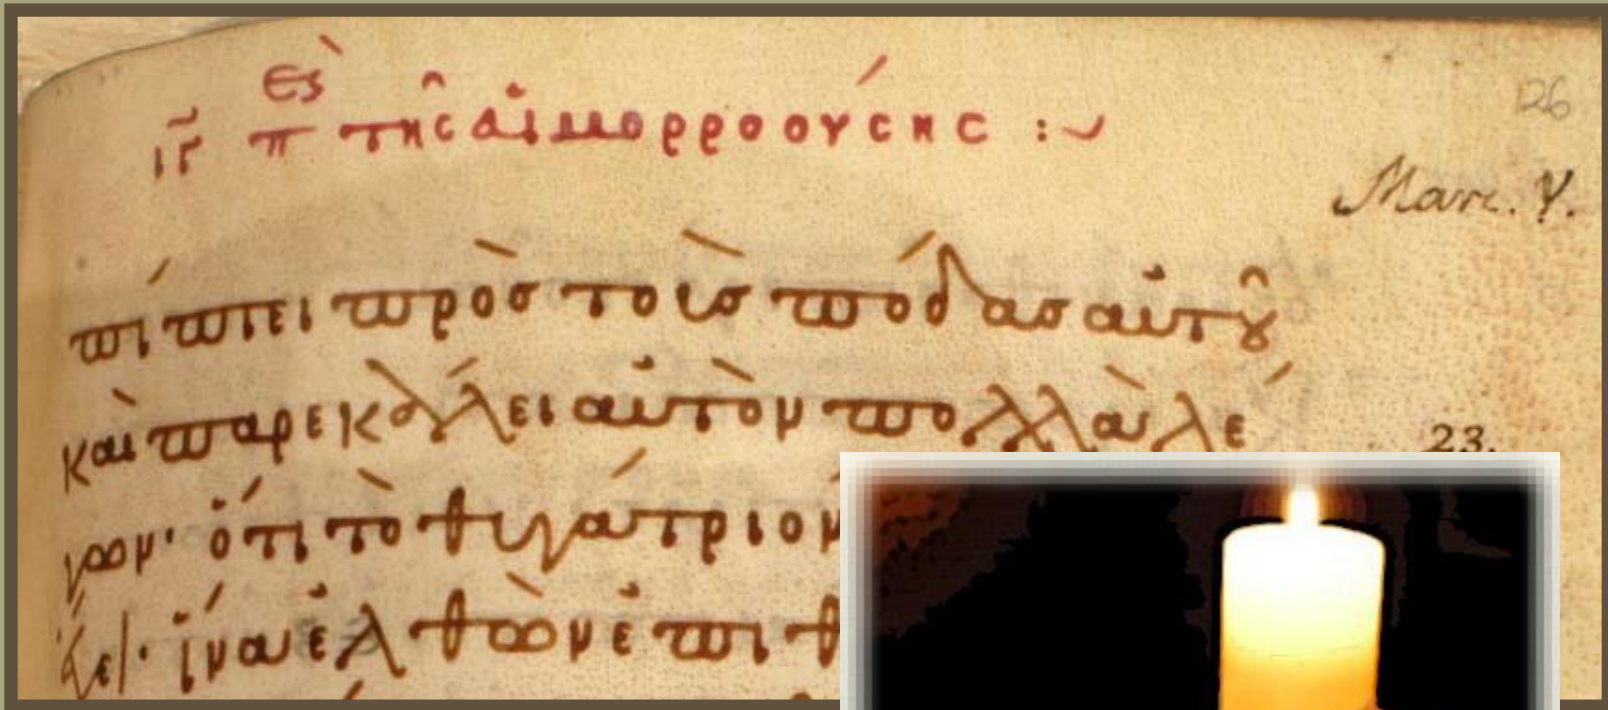 126
ιγ πε της αἱμορροούσης :~
Marc. V.
πίπτει πρὸς τοὺς πόδας αὐτοῦ
καὶ παρεκάλει αὐτὸν πολλὰ λέ
23.
γων· ὅτι τὸ θυγάτριον
ἵνα ἐλθὼν ἐπιθ